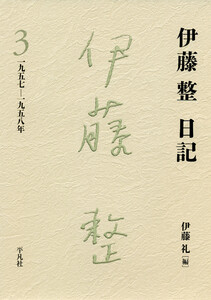 伊藤 整 日記
3
一九五七―一九五八年
伊藤 整
伊藤 礼[編]
平凡社